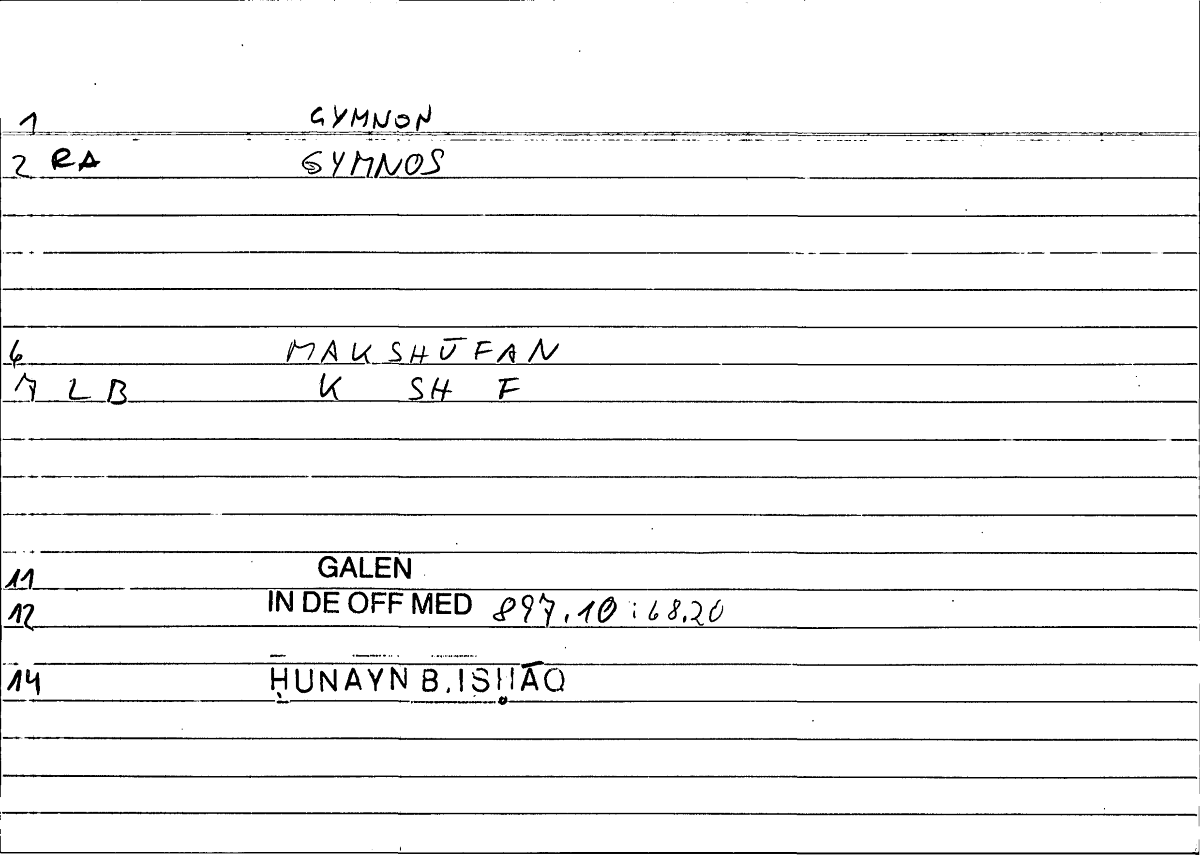 1 GYMNON
2 RA GYMNOS
6 MAKSHŪFAN
7 LB K SH F
11 GALEN
12 IN DE OFF MED 897.10:68.20
14 ḤUNAYN B. ISḤĀQ